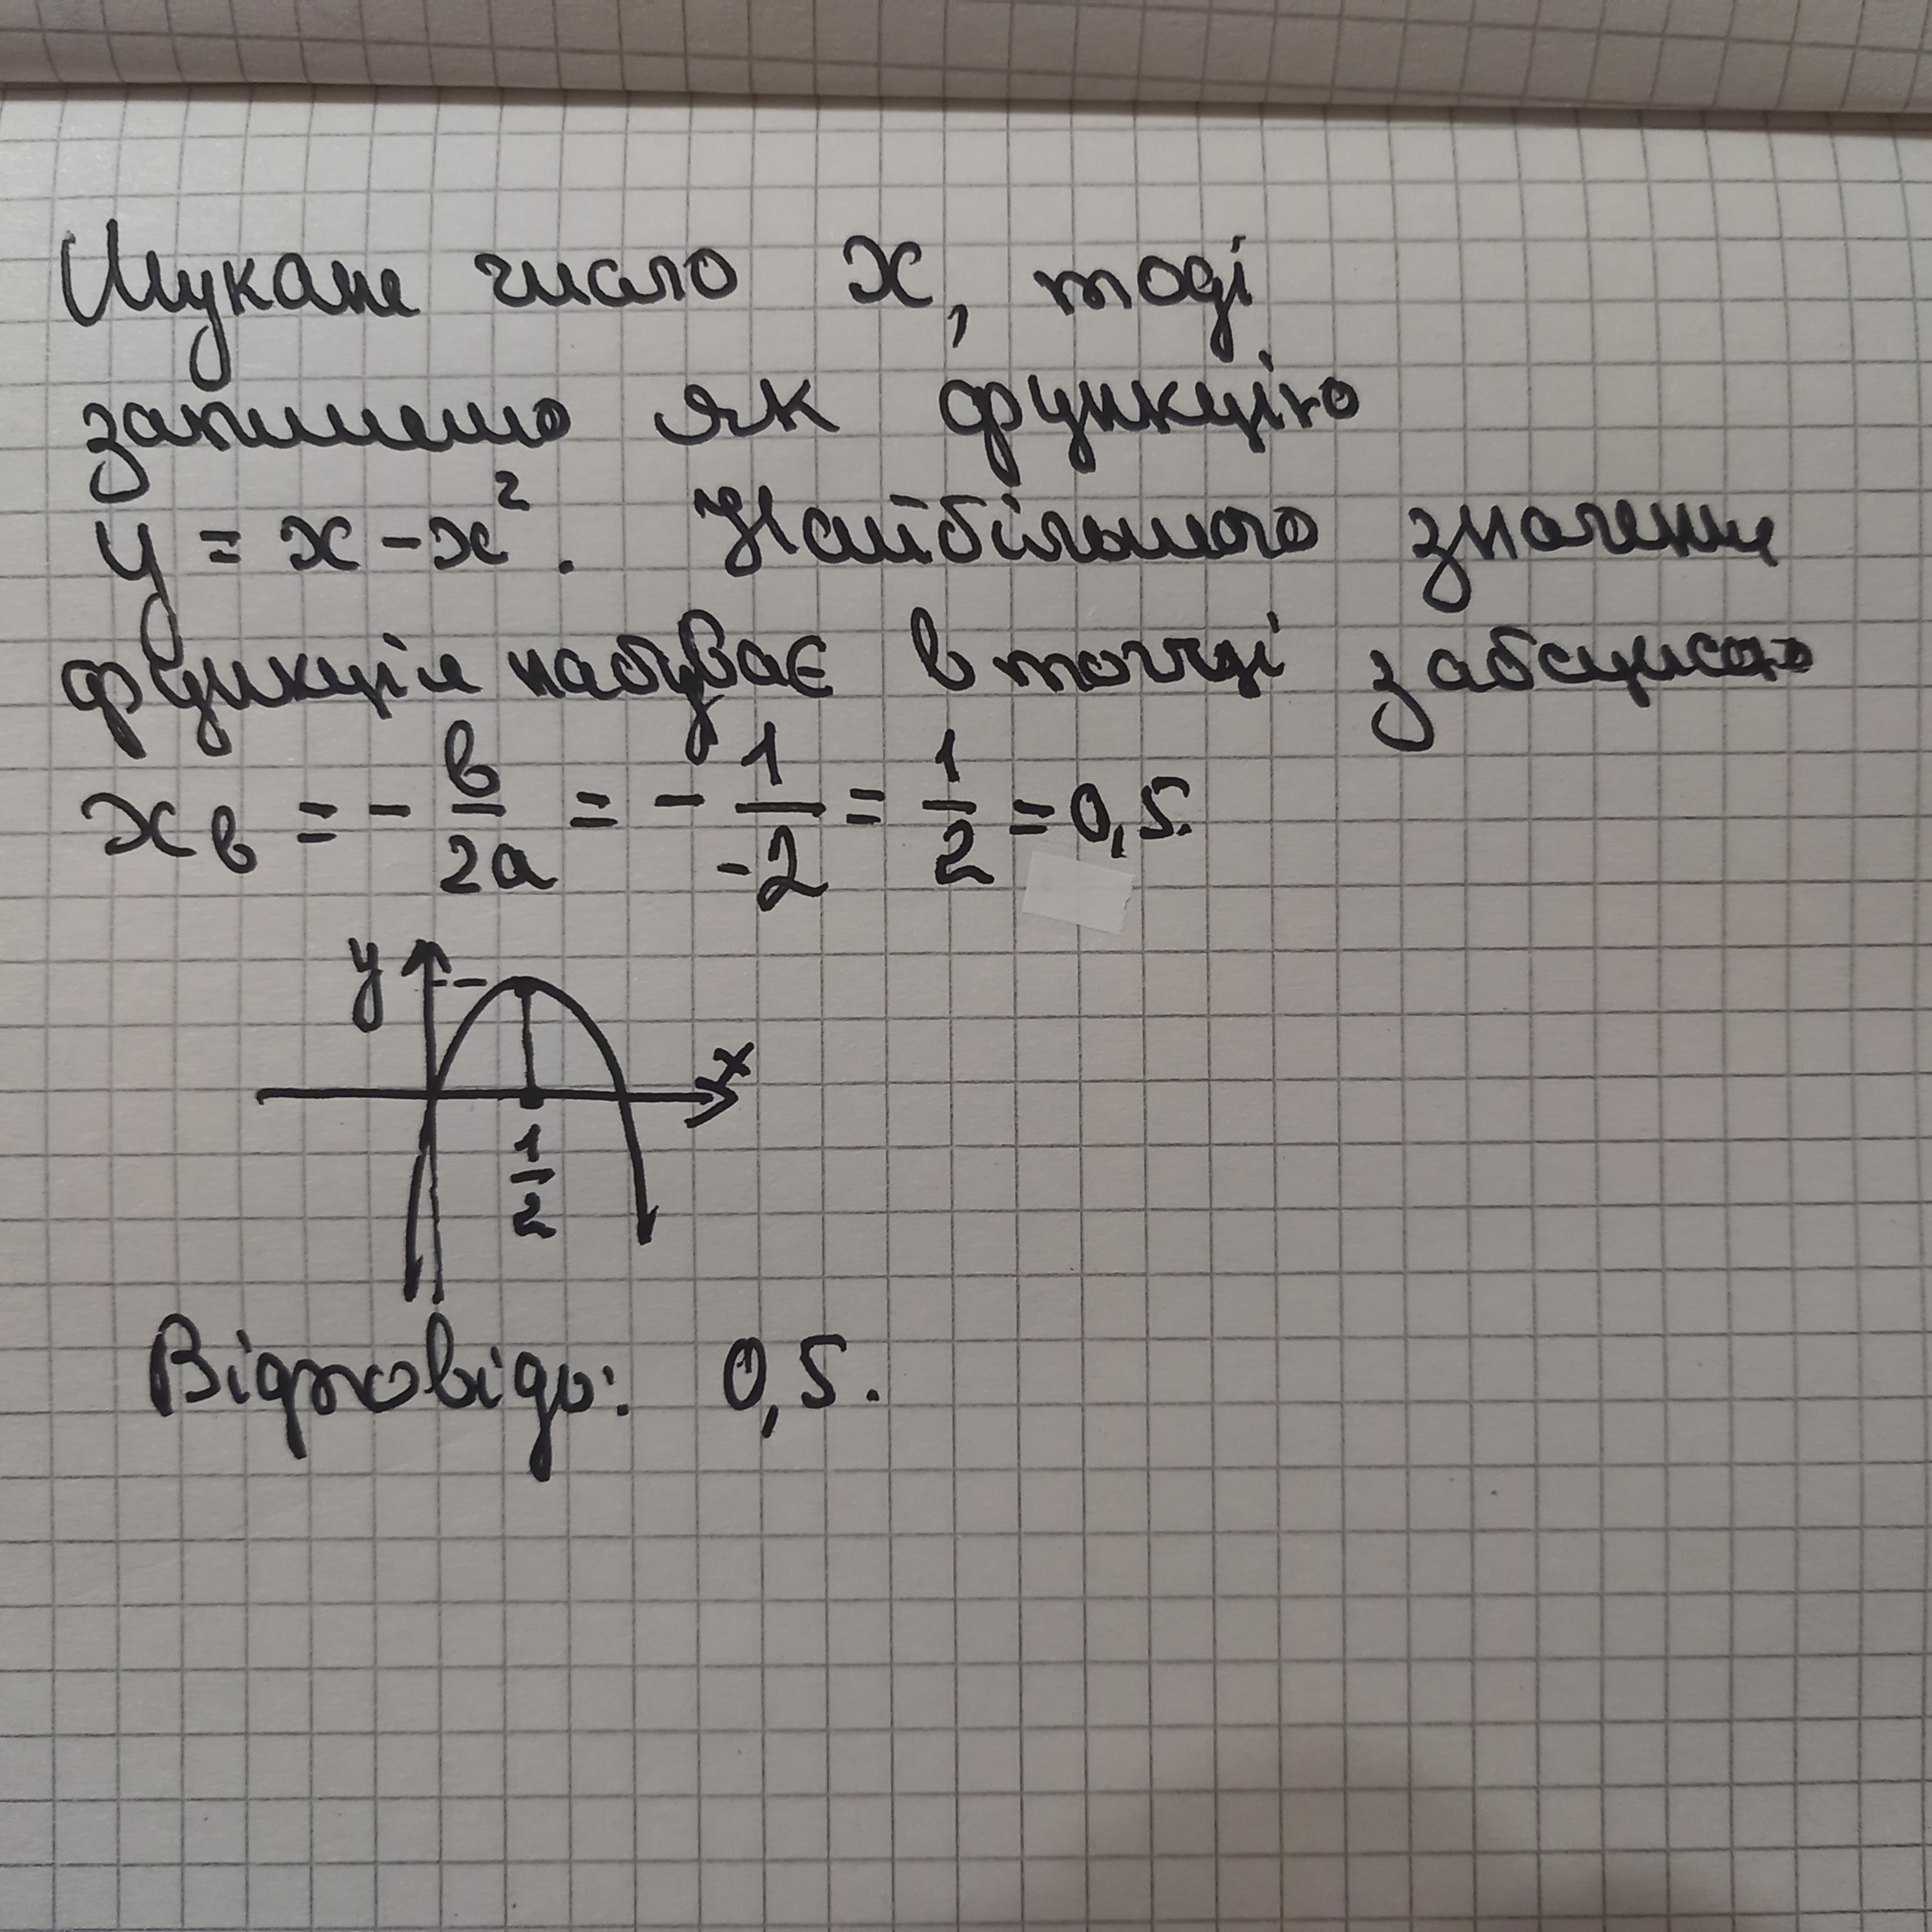 Шукане число x, тоді
запишемо як функцію
y = x - x². Найбільшого значення
функція набуває в точці з абсцисою
xв = - в/2a = - 1/-2 = 1/2 = 0,5.
y
x
1/2
Відповідь: 0,5.